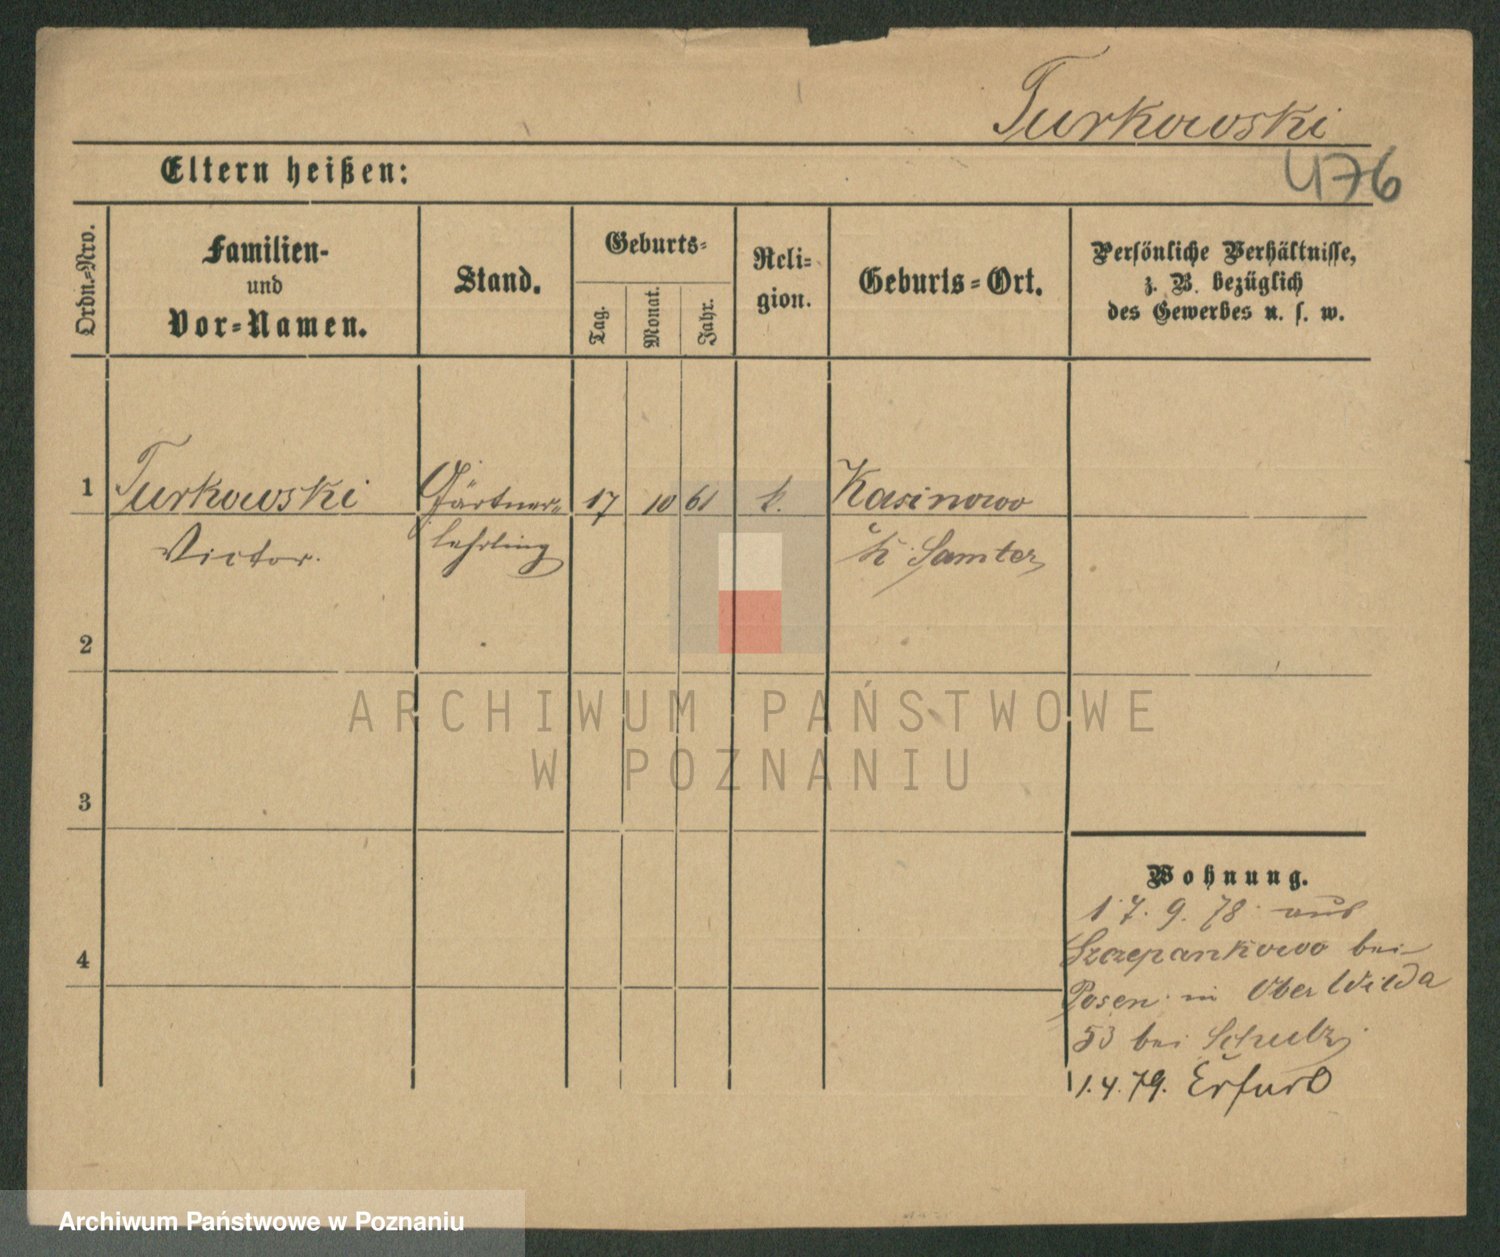 Turkowski
476
Eltern heißen:
Ordn.-Nro.
Familien-
und
Vor-Namen.
Stand.
Geburts-
Tag.
Monat.
Jahr.
Reli-
gion.
Geburts-Ort.
Persönliche Verhältnisse,
z. B. bezüglich
des Gewerbes u. s. w.
1 Turkowski Gärtner- 17 10 61 k. Kasinowo
Victor. lehrling Samter
2
3
4
Wohnung.
17. 9. 78 aus
Szczepankowo bei
Posen in Ober Wilda
53 bei Schulz
1. 4. 79. Erfurt
ARCHIWUM PAŃSTWOWE
W POZNANIU
Archiwum Państwowe w Poznaniu